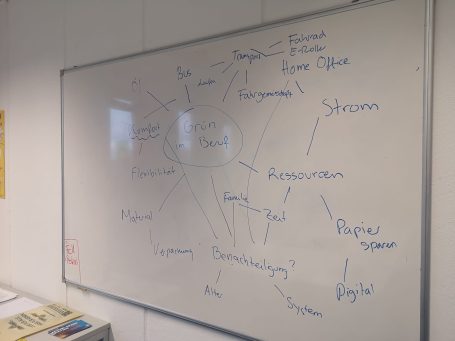 Transport
Fahrrad
E-Roller
Bus
Öl
Home Office
Fahrgemeinschaft
Komfort
Grün
im Beruf
Strom
Flexibilität
Ressourcen
Familie
Zeit
Material
Papier
sparen
Verpackung
Benachteiligung?
Digital
Alter
System